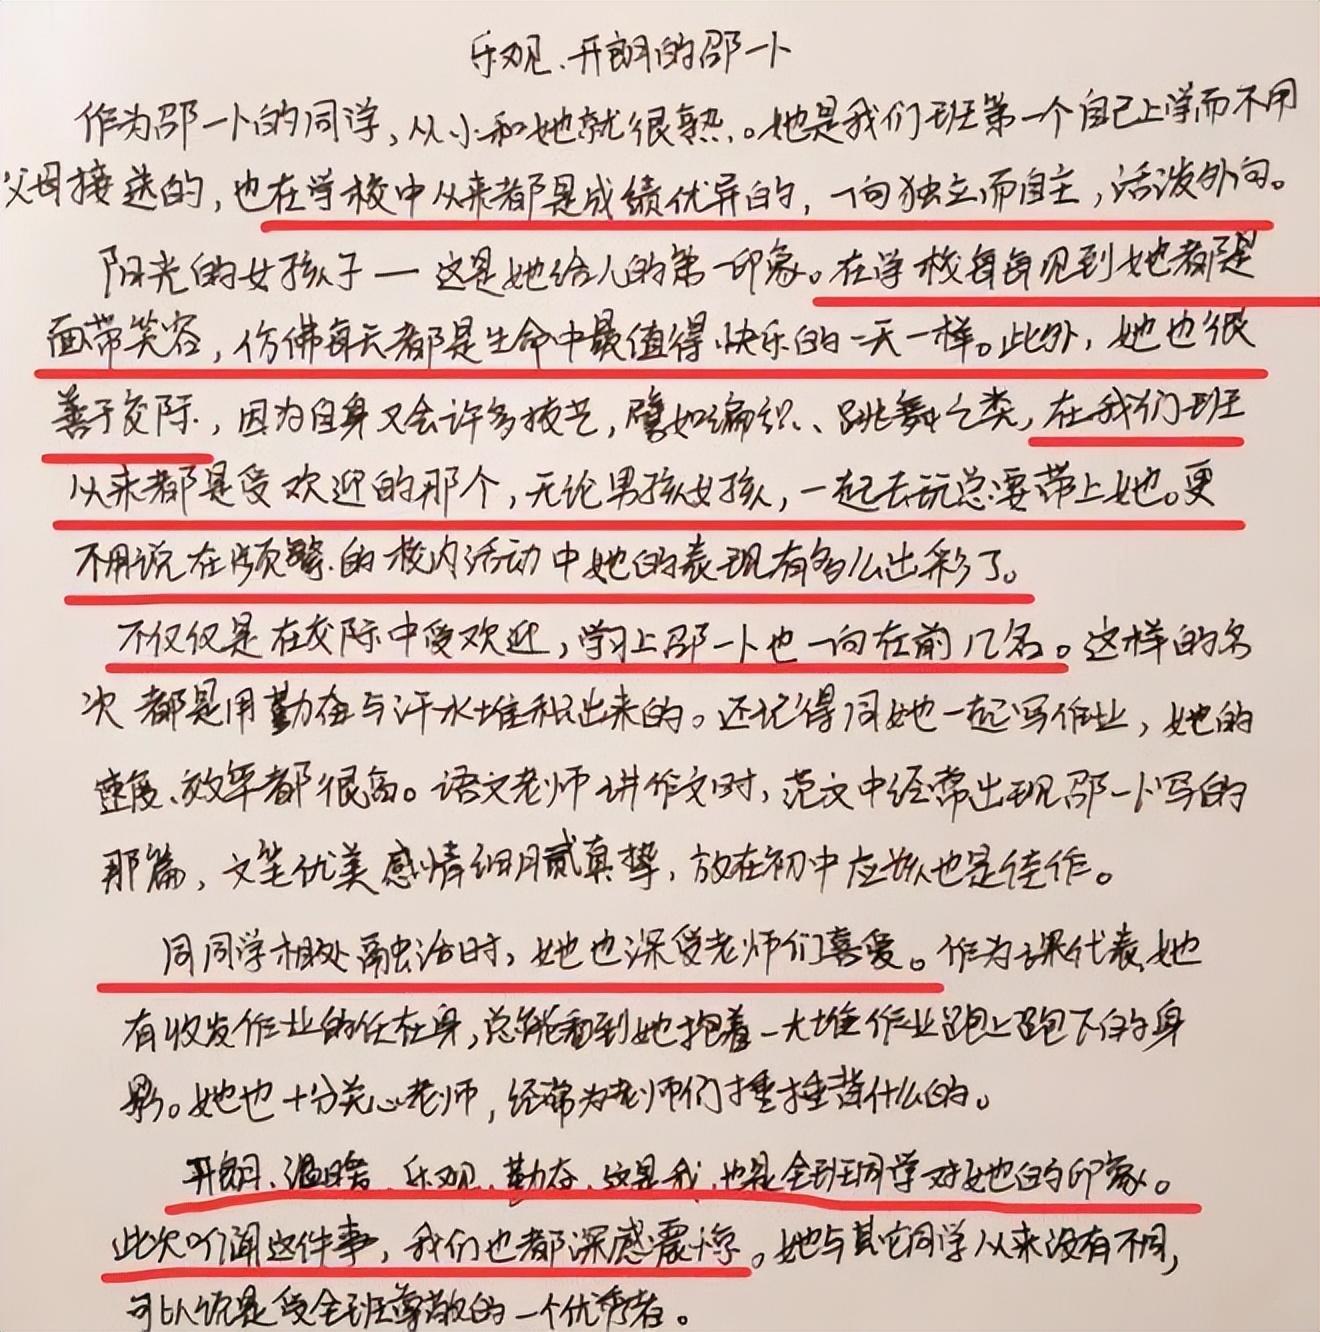 乐观、开朗的邵一卜
作为邵一卜的同学，从小和她就很熟。她是我们班第一个自己上学而不用
父母接送的，也在学校中从来都是成绩优异的，一向独立而自主，活泼外向。
阳光的女孩子一这是她给人的第一印象。在学校每每见到她都是
面带笑容，仿佛每天都是生命中最值得快乐的一天一样。此外，她也很
善于交际，因为自身又会许多技艺，譬如编织、跳舞之类，在我们班
从来都是受欢迎的那个，无论男孩女孩，一起去玩总要带上她。更
不用说在频繁的校内活动中她的表现有多么出彩了。
不仅仅是在交际中受欢迎，学习上邵一卜也一向在前几名。这样的名
次都是用勤奋与汗水堆积出来的。还记得同她一起写作业，她的
速度、效率都很高。语文老师讲作文时，范文中经常出现邵一卜写的
那篇，文笔优美感情细腻真挚，放在初中应该也是佳作。
同同学相处融洽时，她也深受老师们喜爱。作为课代表，她
有收发作业的任在身，总能看到她抱着一大堆作业跑上跑下的身
影。她也十分关心老师，经常为老师们捶捶背什么的。
开朗、温暖、乐观、勤奋，这是我，也是全班同学对她的印象。
此次听闻这件事，我们也都深感震惊。她与其它同学从来没有不同，
可以说是受全班尊敬的一个优秀者。